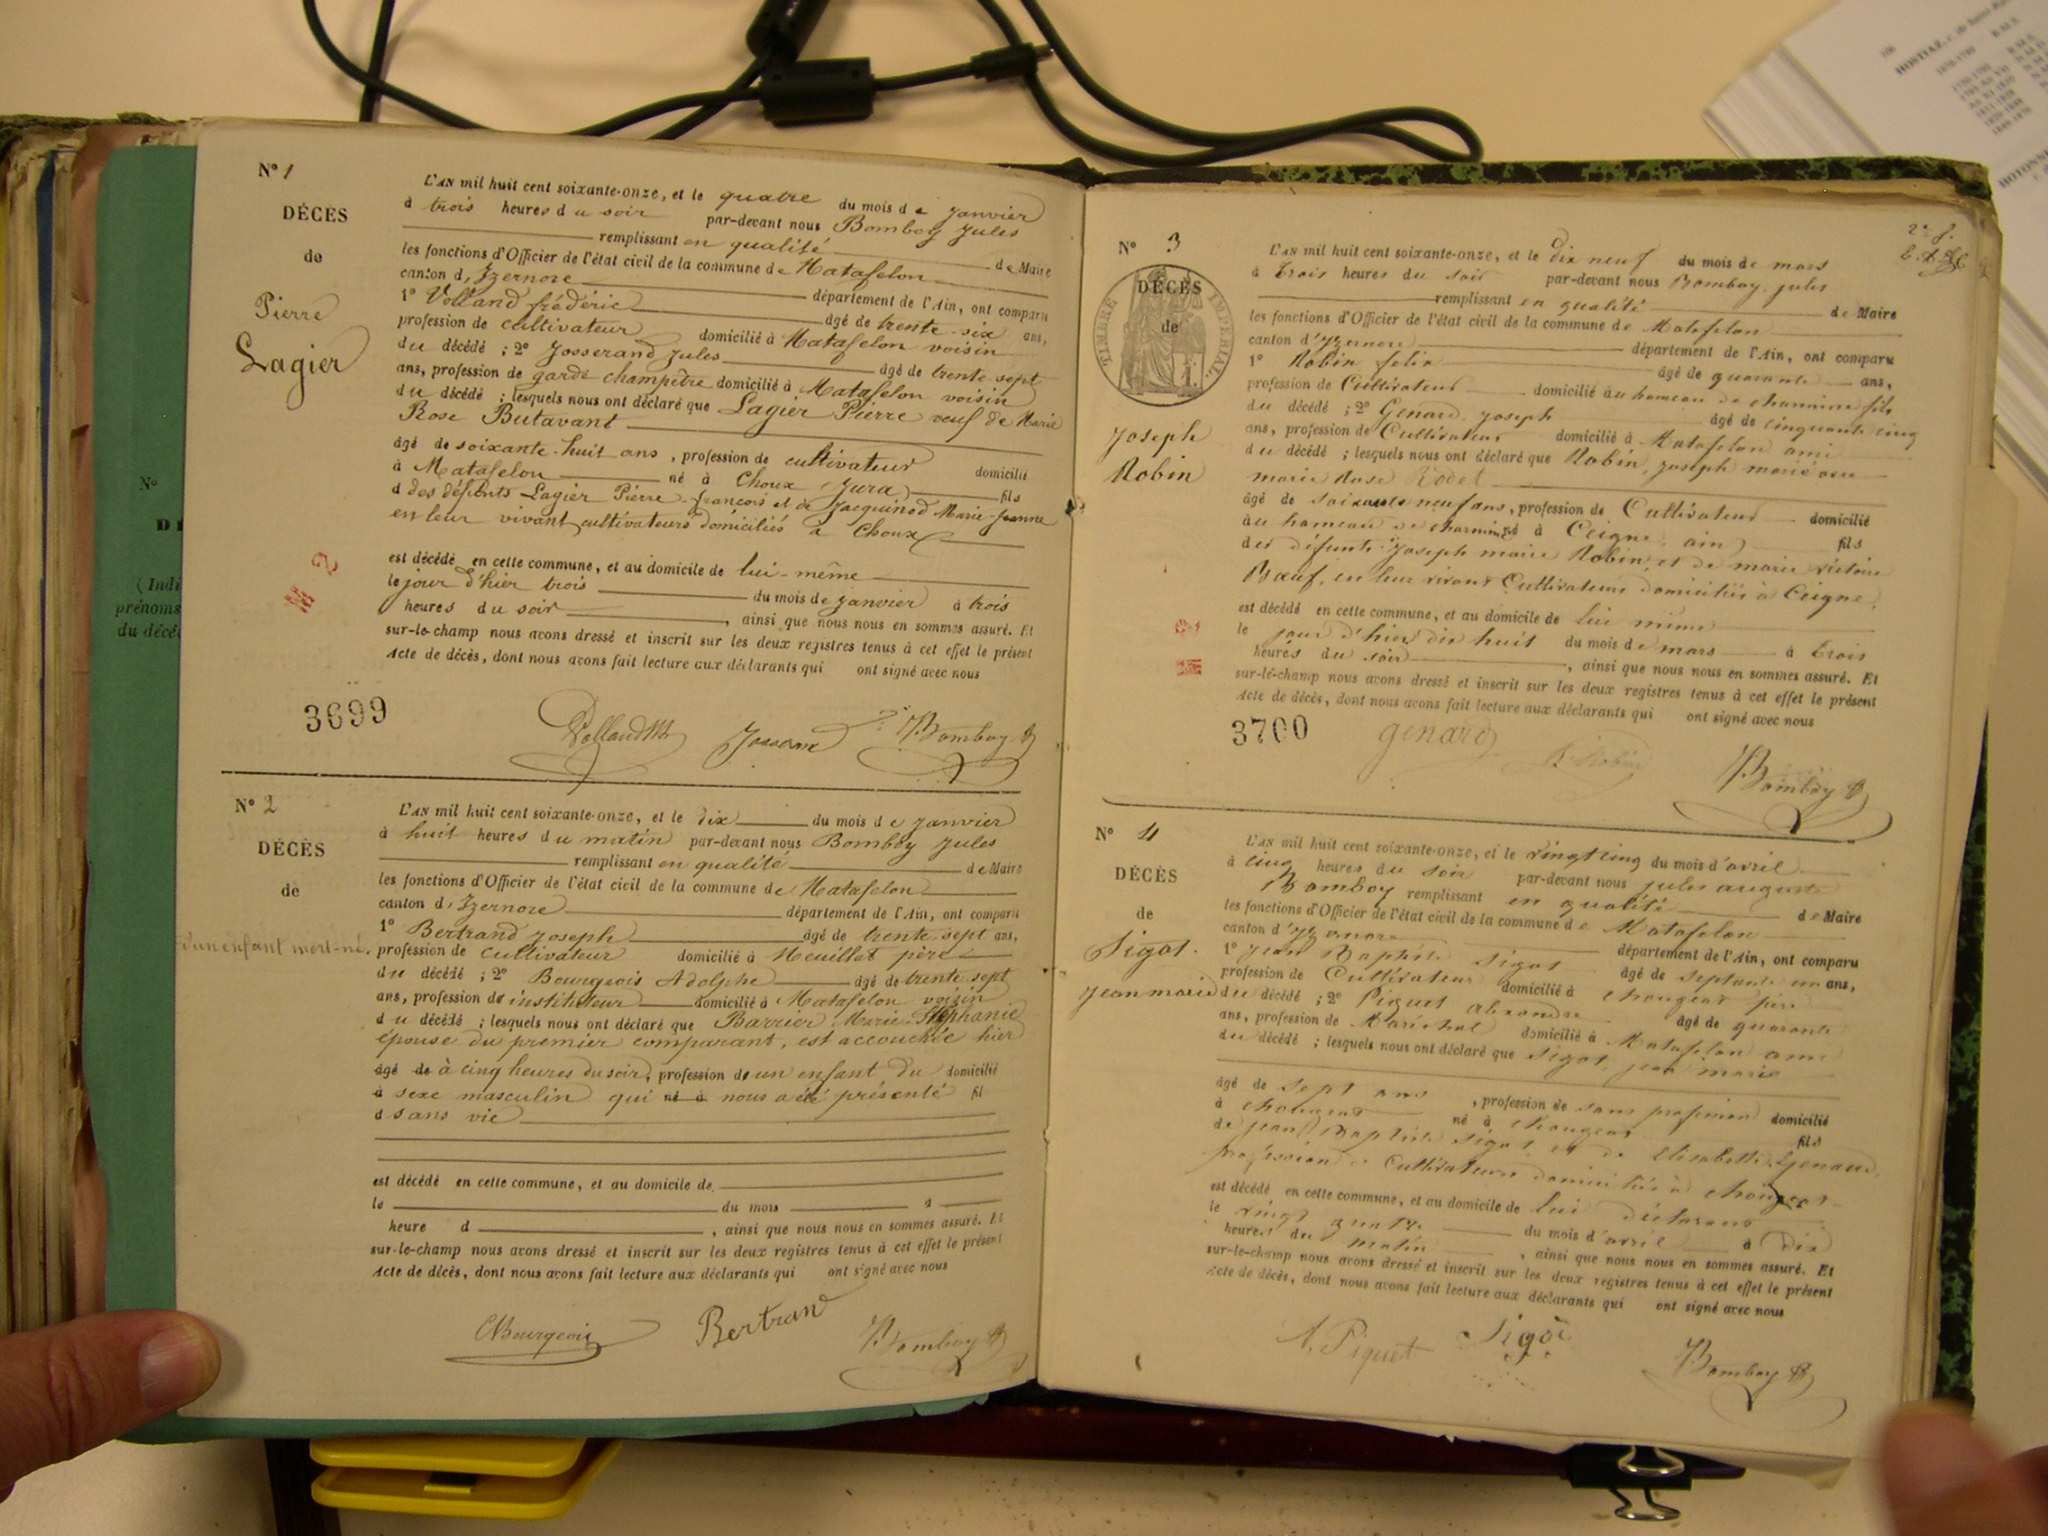 N° 1
DÉCÈS
de
Pierre
Lagier
L'AN mil huit cent soixante-onze, et le quatre du mois de Janvier
à trois heures du soir par-devant nous Bomboy Jules
remplissant en qualité de Maire
les fonctions d'Officier de l'état civil de la commune de Matafelon
canton d'Izernore département de l'Ain, ont comparu
1° Volland frédéric âgé de trente-six ans,
profession de cultivateur domicilié à Matafelon voisin
du décédé ; 2° Josserand Jules âgé de trente sept
ans, profession de garde champêtre domicilié à Matafelon voisin
du décédé ; lesquels nous ont déclaré que Lagier Pierre veuf de Marie
Rose Butavant
âgé de soixante-huit ans, profession de cultivateur domicilié
à Matafelon né à Choux (Jura) fils
d des défunts Lagier Pierre-françois et de Jacquinod Marie-Jeanne
en leur vivant cultivateurs domiciliés à Choux
est décédé en cette commune, et au domicile de lui-même
le jour d'hier trois du mois de janvier à trois
heures du soir, ainsi que nous nous en sommes assuré. Et
sur-le-champ nous avons dressé et inscrit sur les deux registres tenus à cet effet le présent
Acte de décès, dont nous avons fait lecture aux déclarants qui ont signé avec nous
3699
Josserand Bomboy
N° 2
DÉCÈS
de
d'un enfant mort-né.
L'AN mil huit cent soixante-onze, et le dix du mois de janvier
à huit heures du matin par-devant nous Bomboy Jules
remplissant en qualité de Maire
les fonctions d'Officier de l'état civil de la commune de Matafelon
canton d'Izernore département de l'Ain, ont comparu
1° Bertrand Joseph âgé de trente-sept ans,
profession de cultivateur domicilié à Heuillet père
du décédé ; 2° Bourgeois Adolphe âgé de trente sept
ans, profession de instituteur domicilié à Matafelon voisin
du décédé ; lesquels nous ont déclaré que Barrier Marie-Stéphanie
épouse du premier comparant, est accouchée hier
âgé de à cinq heures du soir, profession de un enfant du domicilié
à sexe masculin qui né à nous a été présenté fil
d sans vie
est décédé en cette commune, et au domicile de
le du mois à
heure d , ainsi que nous nous en sommes assuré. Et
sur-le-champ nous avons dressé et inscrit sur les deux registres tenus à cet effet le présent
Acte de décès, dont nous avons fait lecture aux déclarants qui ont signé avec nous
Bourgeois Bertrand Bomboy
N° 3
TIMBRE IMPÉRIAL
DÉCÈS
de
Joseph
Robin
L'AN mil huit cent soixante-onze, et le dix neuf du mois de mars
à trois heures du soir par-devant nous Bomboy, jules
remplissant en qualité de Maire
les fonctions d'Officier de l'état civil de la commune de Matafelon
canton d'Izernore département de l'Ain, ont comparu
1° Robin felix âgé de quarante ans,
profession de Cultivateur domicilié au hameau de charmine fils
du décédé ; 2° Genard, Joseph âgé de cinquante cinq
ans, profession de Cultivateur domicilié à Matafelon ami
du décédé ; lesquels nous ont déclaré que Robin, Joseph marié avec
marie Rose Rodet
âgé de soixante neuf ans, profession de Cultivateur domicilié
au hameau de charmine né à Ceigne, ain) fils
des défunts Joseph marie Robin, et de marie victoire
Bœuf, en leur vivant Cultivateurs domiciliés à Ceigne,
est décédé en cette commune, et au domicile de lui même
le jour d'hier dix huit du mois de mars à trois
heures du soir, ainsi que nous nous en sommes assuré. Et
sur-le-champ nous avons dressé et inscrit sur les deux registres tenus à cet effet le présent
Acte de décès, dont nous avons fait lecture aux déclarants qui ont signé avec nous
3700
genard Robin
Bomboy
N° 4
DÉCÈS
de
Sigot.
Jean marie
L'AN mil huit cent soixante-onze, et le vingt cinq du mois d'avril
à cinq heures du soir par-devant nous jules auguste
Bomboy remplissant en qualité de Maire
les fonctions d'Officier de l'état civil de la commune de Matafelon
canton d'Izernore département de l'Ain, ont comparu
1° Jean Baptiste Sigot âgé de septante un ans,
profession de Cultivateur domicilié à chougeat père
du décédé ; 2° Piquet alexandre âgé de quarante
ans, profession de Maréchal domicilié à Matafelon ami
du décédé ; lesquels nous ont déclaré que Sigot, jean marie
âgé de sept ans, profession de sans profession domicilié
à chougeat né à chougeat fils
de jean Baptiste Sigot et de Elisabeth Genard,
profession de Cultivateurs domiciliés à chougeat
est décédé en cette commune, et au domicile de lui déclarant
le vingt quatre du mois d'avril à dix
heures du matin, ainsi que nous nous en sommes assuré. Et
sur-le-champ nous avons dressé et inscrit sur les deux registres tenus à cet effet le présent
Acte de décès, dont nous avons fait lecture aux déclarants qui ont signé avec nous
A. Piquet Sigot
Bomboy
N°
(Indi
prénoms
du décé
HOSTIAZ